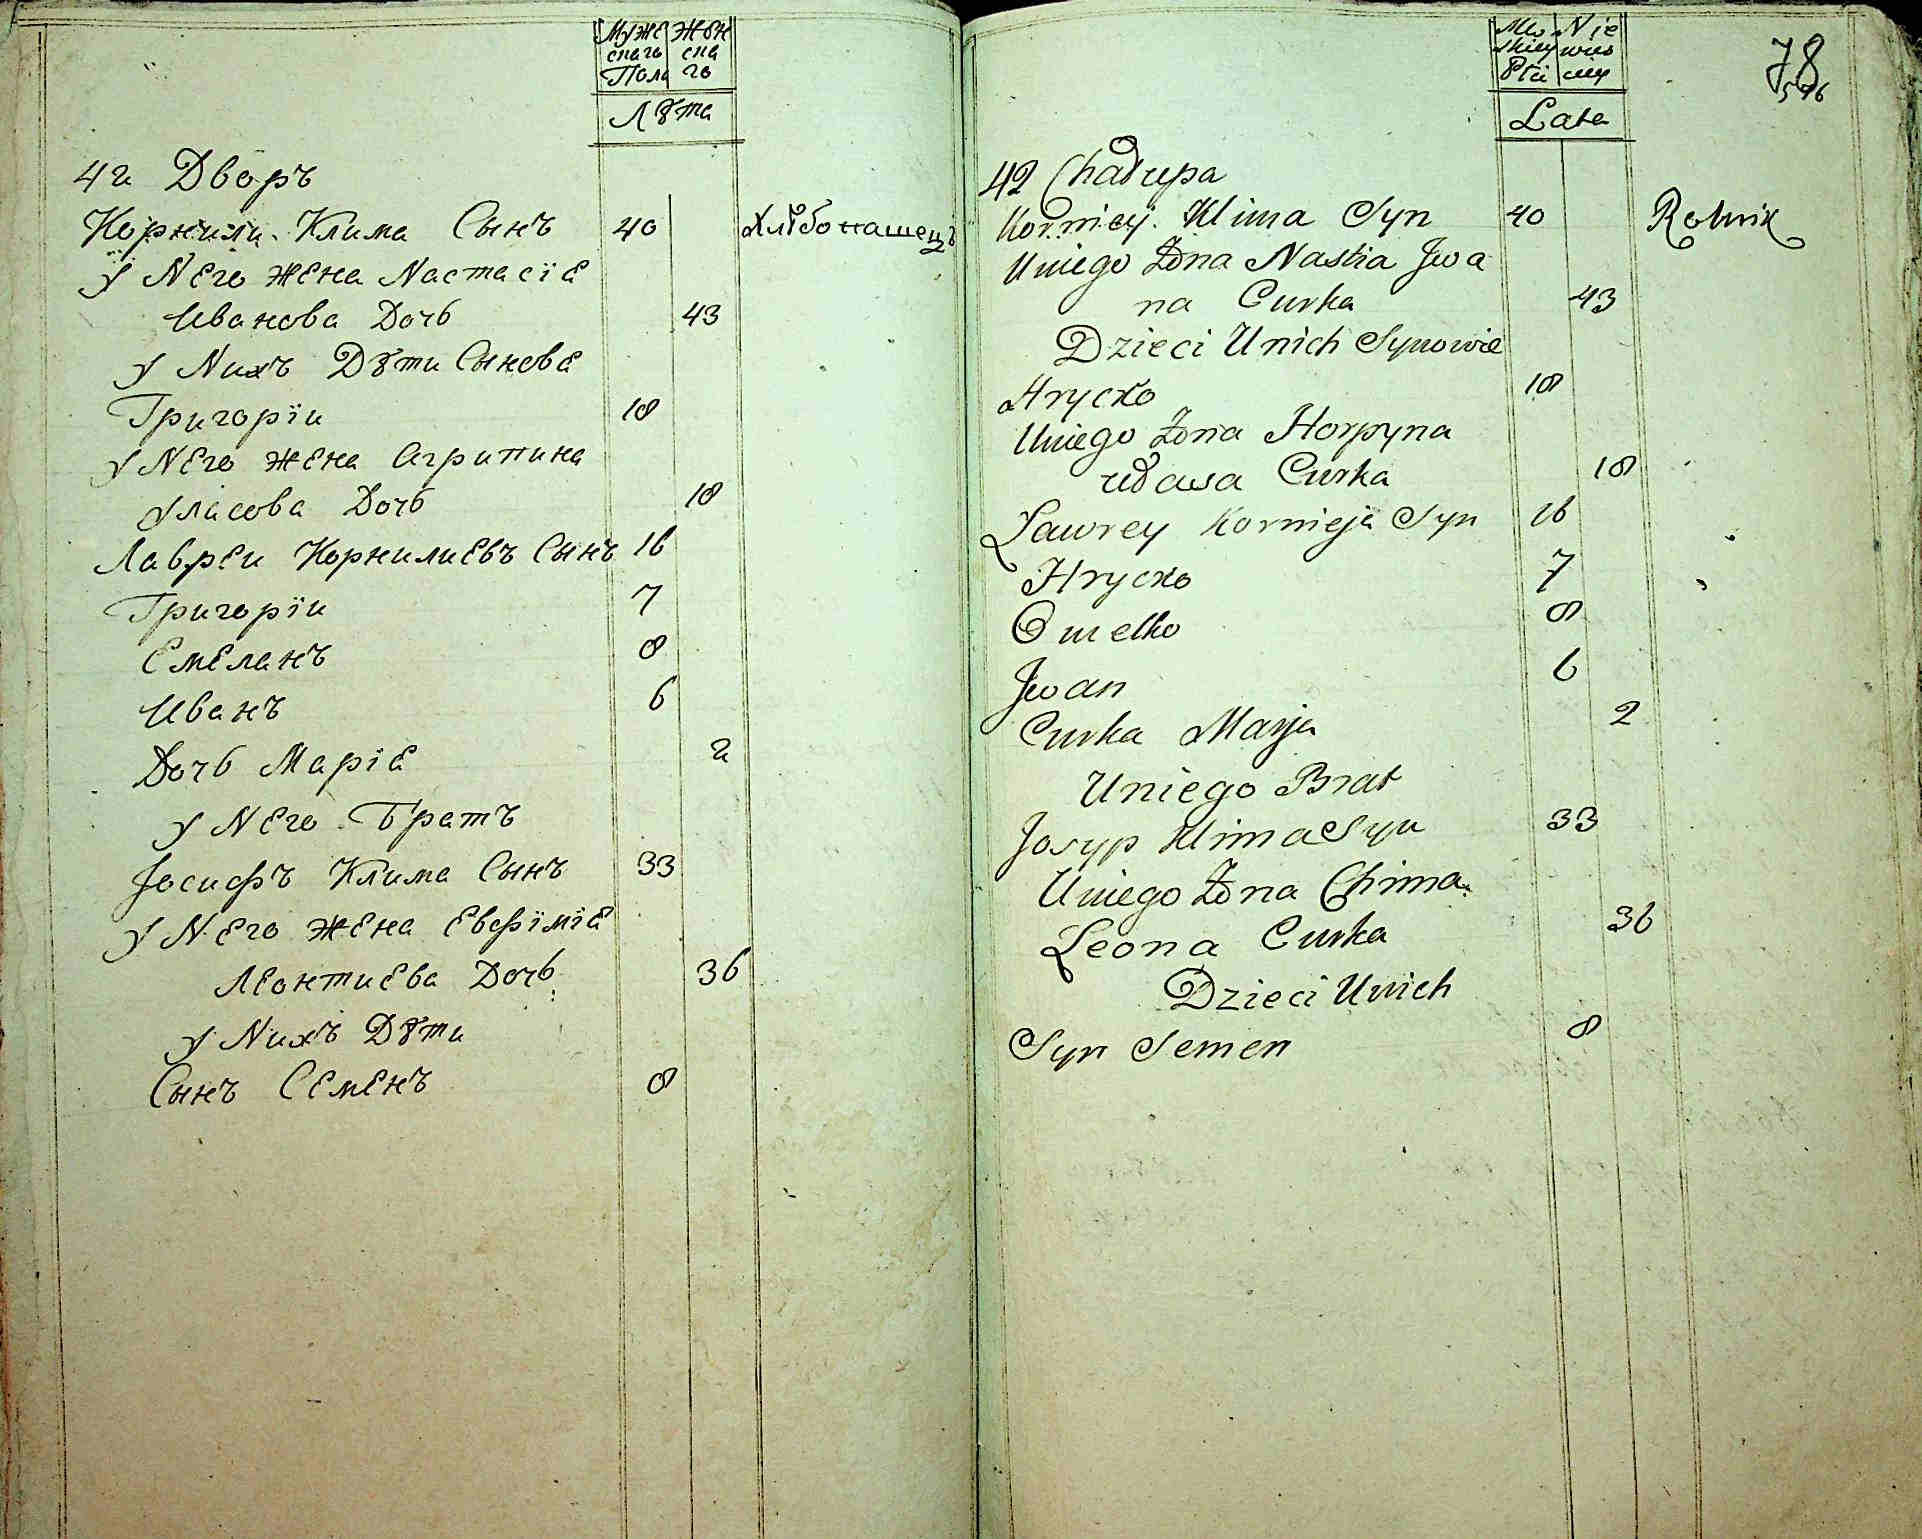 Муже Жен
скаго ска
Пола го
Лѣта
42 Дворъ
Корнили Клима Сынъ 40 Хлѣбопашецъ
У Него жена Настасїе
Иванова Дочь 43
У Нихъ Дѣти Сынове
Григорїи 18
У Него жена Агрипина
Уласова Дочь 18
Лавреи Корнилиевъ Сынъ 16
Григорїи 7
Емеланъ 8
Иванъ 6
Дочь Марїе 2
У Него Братъ
Jосифъ Клима Сынъ 33
У Него жена Евфїмїе
Леонтиева Дочь 36
У Нихъ Дѣти
Сынъ Семенъ 8
78
576
Męs Nie
skiey wies
Płci ciey
Lata
42 Chałupa
Korniey Klima Syn 40 Rolnik
Uniego Żona Nastia Jwa
na Curka 43
Dzieci Unich Synowie
Hrycko 18
Uniego Żona Horpyna
Ułasa Curka 18
Lawrey Kornieja Syn 16
Hrycko 7
Omelko 8
Jwan 6
Curka Marja 2
Uniego Brat
Josyp Klima Syn 33
Uniego Żona Chima
Leona Curka 36
Dzieci Unich
Syn Semen 8